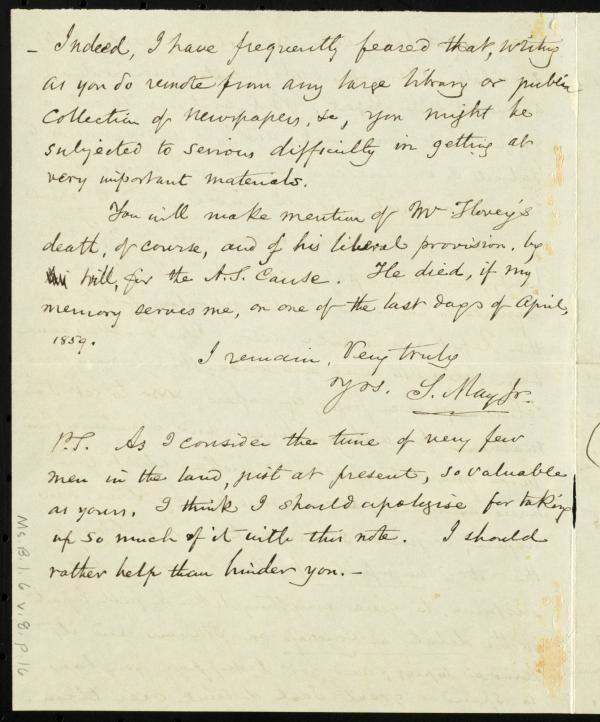 – Indeed, I have frequently feared that, writing
as you do remote from any large library or public
collection of newspapers, &c, you might be
subjected to serious difficulty in getting at
very important materials.
You will make mention of Mr Hovey's
death, of course, and of his liberal provision, by
will, for the A.S. Cause. He died, if my
memory serves me, on one of the last days of April,
1859.
I remain, Very truly
Yrs. S. May Jr.
P.S. As I consider the time of very few
men in the land, just at present, so valuable
as yours, I think I should apologise for taking
up so much of it with this note. I should
rather help than hinder you. –
Ms.B.1.6 v.8, p.16